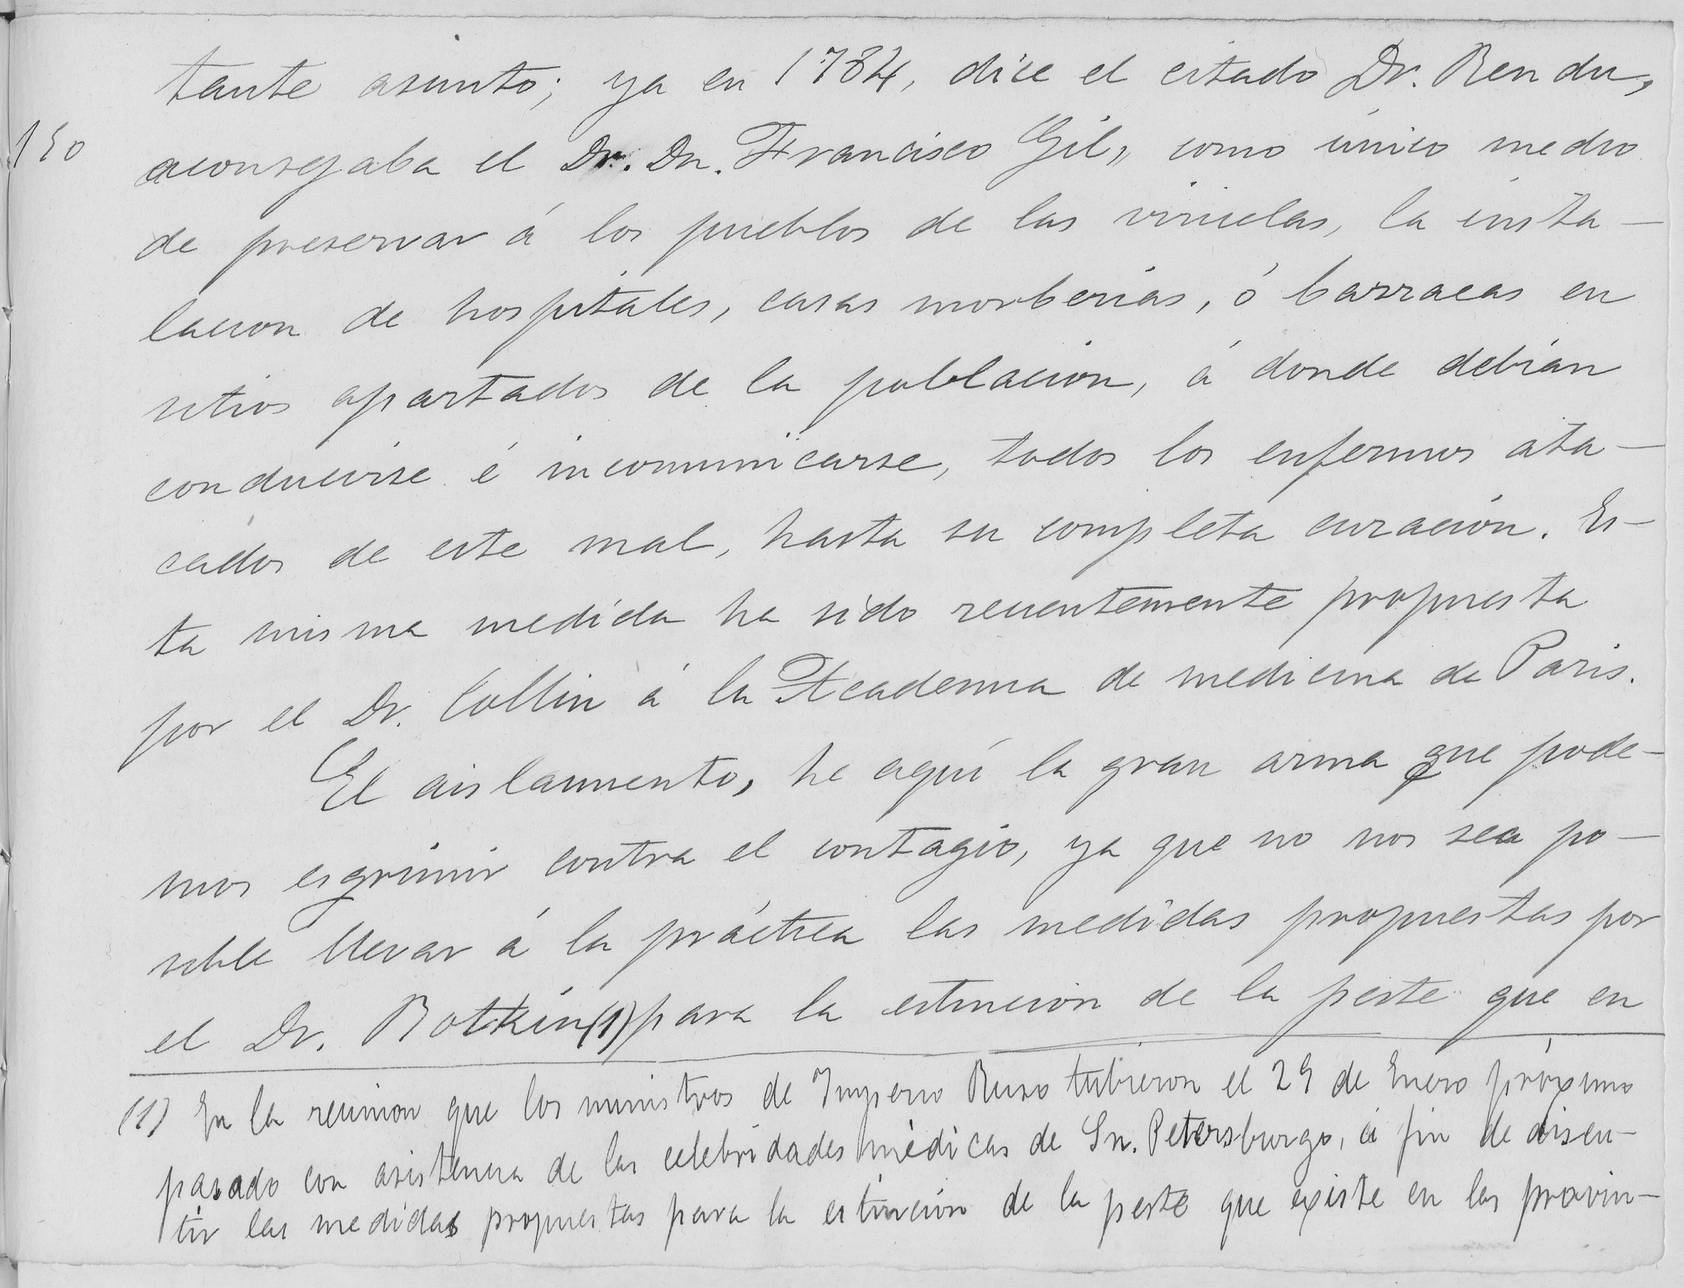 tante asunto; ya en 1784, dice el citado Dr. Rendu,
150
aconsejaba el Dr. Dn. Francisco Gil, como único medio
de preservar á los pueblos de las viruelas, la insta-
lacion de hospitales, casas morberias, ó barracas en
sitios apartados de la poblacion, á donde debían
conducirse é incomunicarse, todos los enfermos ata-
cados de este mal, hasta su completa curación. Es-
ta misma medida ha sido recientemente propuesta
por el Dr. Collin á la Academia de medicina de Paris.
El aislamiento, he aquí la gran arma que pode-
mos esgrimir contra el contagio, ya que no nos sea po-
sible llevar á la práctica las medidas propuestas por
el Dr. Botkin (1) para la estincion de la peste que en
(1) En la reunion que los ministros de Imperio Ruso tubieron el 29 de Enero próximo
pasado con asistencia de las celebridades médicas de Sn. Petersburgo, á fin de discu-
tir las medidas propuestas para la estinción de la peste que existe en las provin-